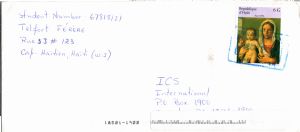 Student Number 67815121
Telfort FERERE
Rue 33 # 123
Cap-Haitien, Haiti (W.I)
République d'Haïti
6 G
ICS
International
PO Box 1900